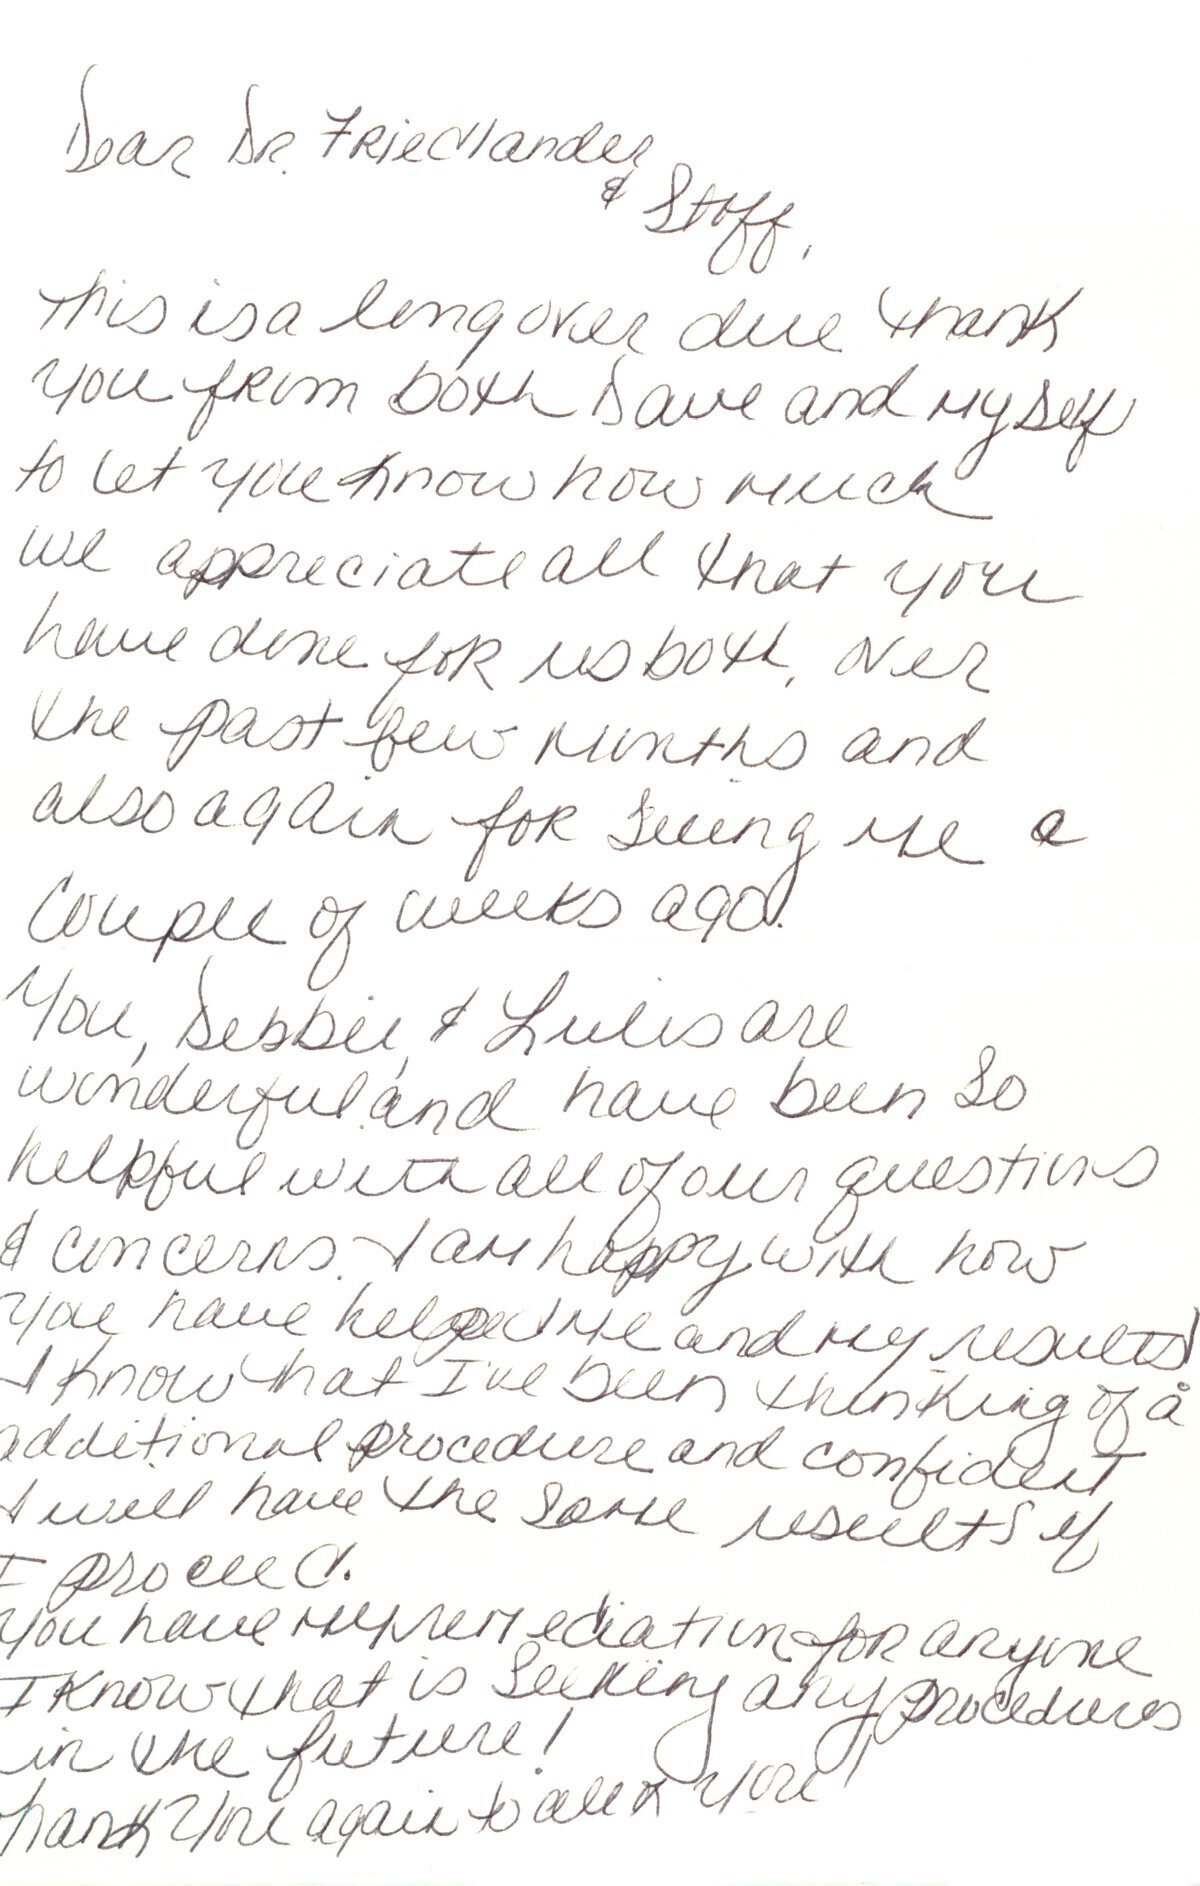 Dear Dr. Friedlander
& Staff,
This is a long over due thank
you from both Dave and myself
to let you know how much
we appreciate all that you
have done for us both, over
the past few months and
also again for seeing me a
couple of weeks ago.
You, Debbie, & are
wonderful and have been so
helpful with all of our questions
& concerns. I am happy with how
you have helped me and my results!
I know that I've been thinking of a
additional procedure and confident
I will have the same results if
I proceed.
You have my for anyone
I know that is seeking any procedures
in the future!
Thank You again to all of you!